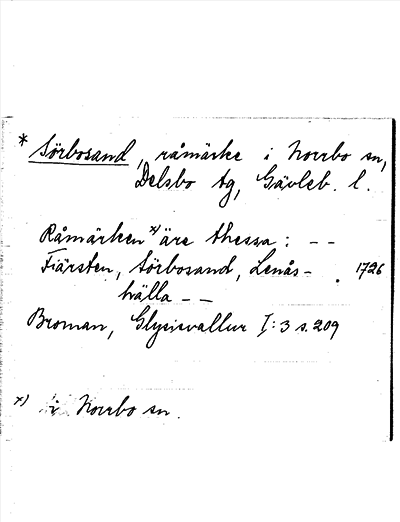 * Sörbosand, råmärke i Norrbo sn,
Delsbo tg, Gävleb. l.
Råmärken x) äre thessa: - -
Fiärsten, Sörbosand, Lenås- . 1726
hälla - -
Broman, Glysisvallur I: 3 s. 209
x) i Norrbo sn.